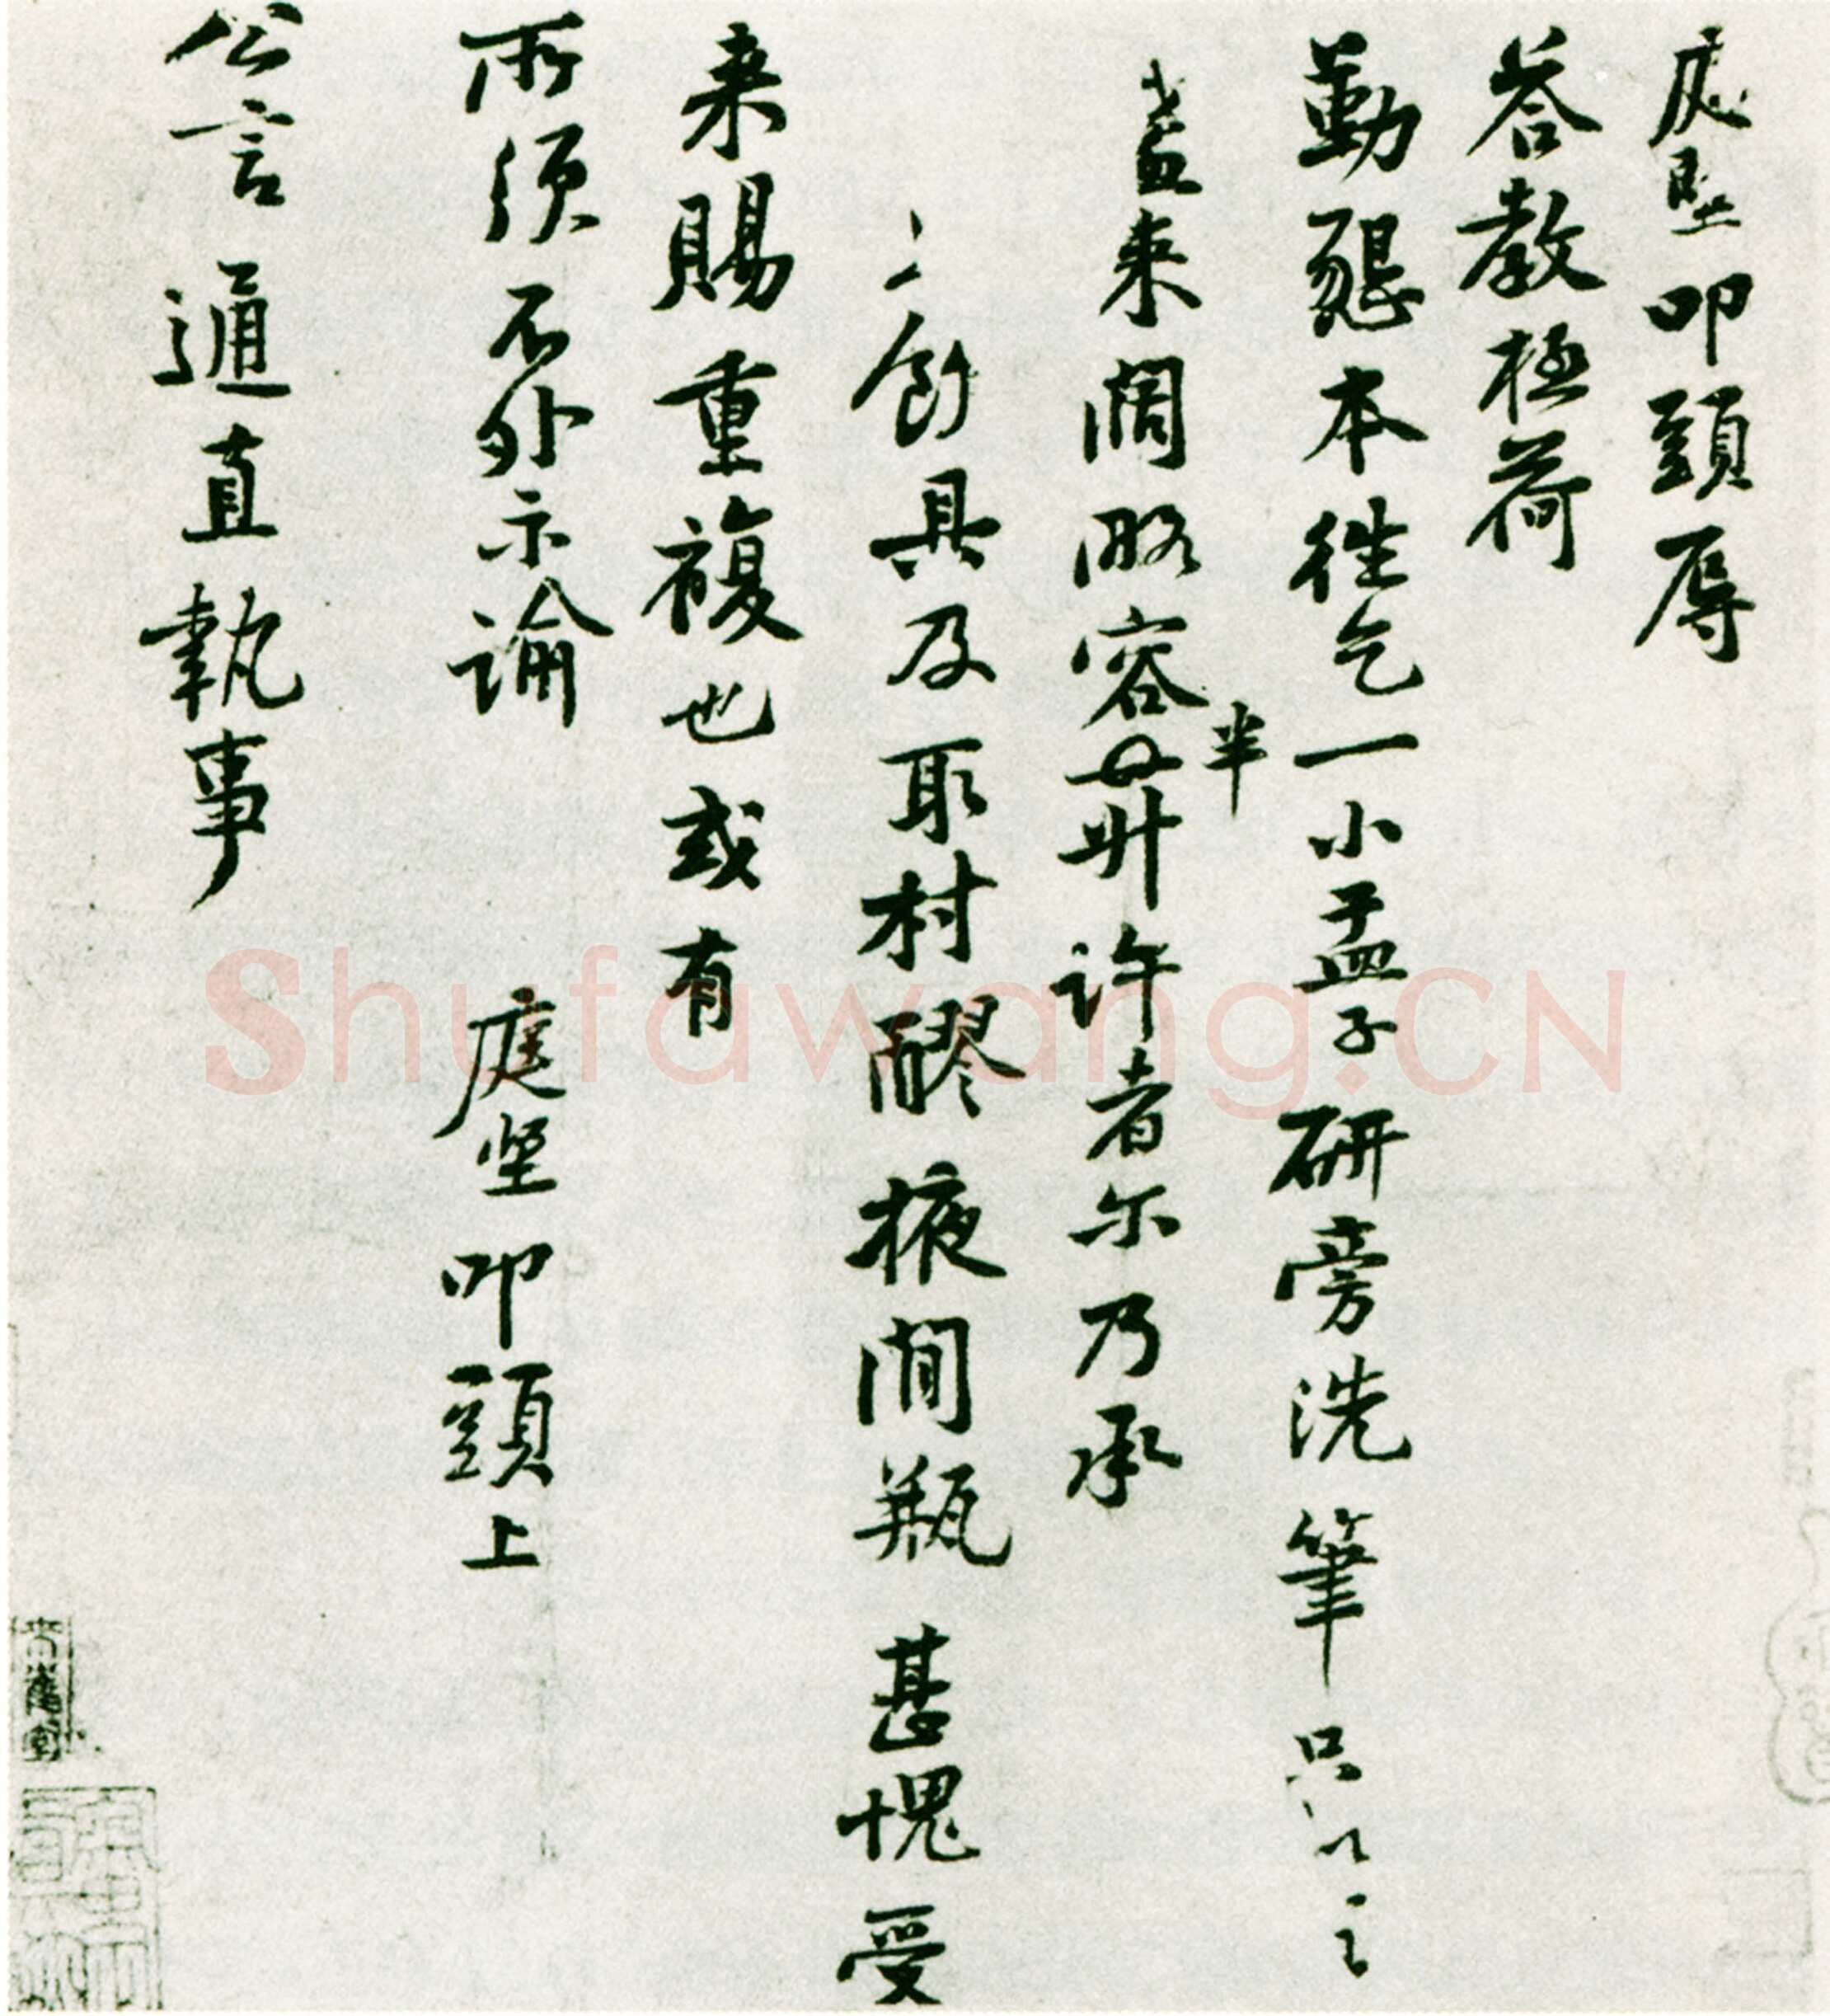 庭堅叩頭辱
荅教極荷
勤懇本徃乞一小盂子研旁洗筆只以之
盞来闊略容半升許者尔乃承
飲具及取村醪掖間瓶甚愧受
来賜重複也或有
所須不外示諭
庭坚叩頭上
公言通直執事
Shufawang.CN